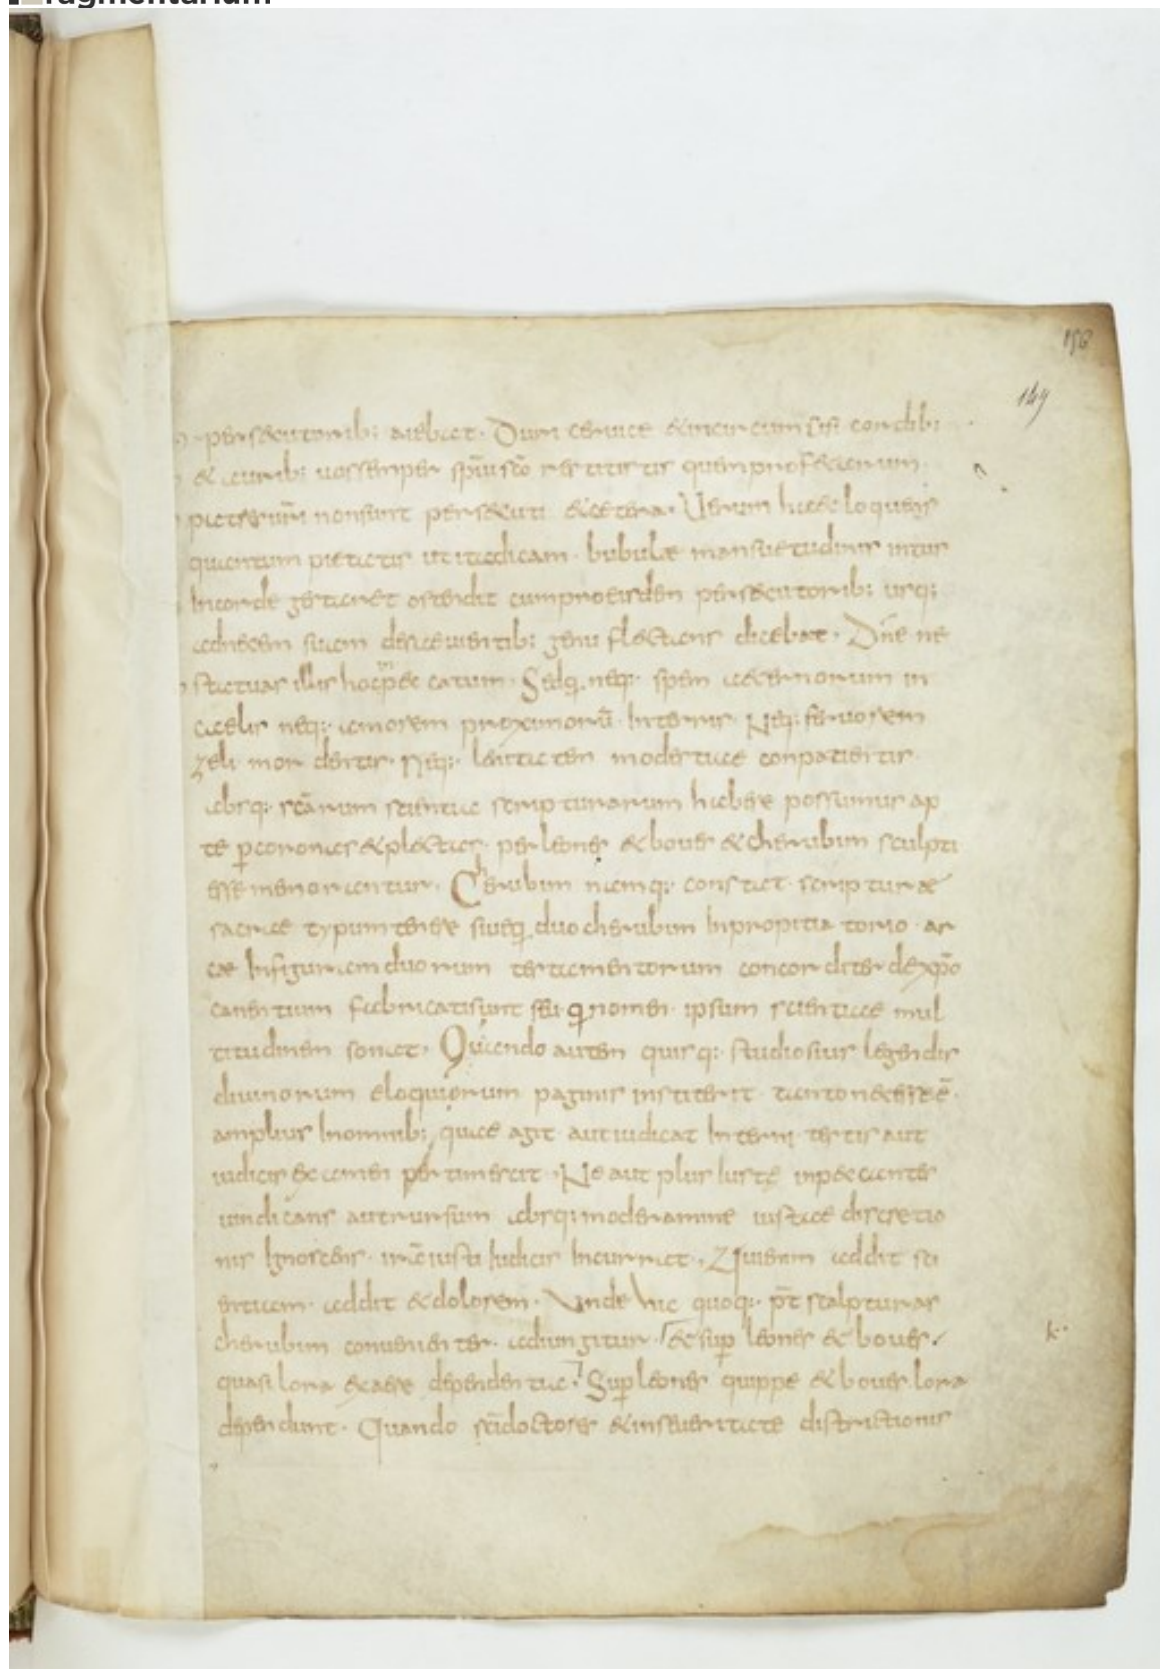 fragmentarium
156
149
persecutorib: aiebat. Dura ceruice & incircumcisi cordib:
& aurib: uos semper sp̄ui sc̄o restitistis quem profetarum
patrum ur̄i non sunt persecuti & cetera. Uerum haec loquens
quantum pietatis ut ita dicam bubulae mansuetudinis intus
in corde gestaret ostendit cum pro eisdem persecutorib: usq:
ad necem suam deseuientib: genu flectens dicebat. Dn̄e ne
statuas illis hoc peccatum. Sed q: neq: spem aeternorum in
caelis neq: amorem proximorū in terris. Neq: feruorem
zeli mordentis. Neq: lenitatem modestiae conpatientis.
absq: sc̄arum scientia scripturarum habere possumus ap
te p̱ coronas & plectas. per leones & boues & cherubim sculpti
esse memorantur. Cherubim namq: constat scripturae
sacrae typum tenere siue q: duo cherubim in propitiatorio ar
cae in figuram duorum testamentorum concorditer de xp̄o
canentium fabricati sunt seu q: nomen ipsum scientiae mul
titudinem sonat. Quando autem quisq: studiosius legendis
diuinorum eloquiorum paginis institerit tanto necesse ē.
amplius in omnib: quae agit aut iudicat interni testis aut
iudicis examen pertimescat. Ne aut plus iuste inpaecanter
uindicans aut rursum absq: moderamine iustae discretio
nis ignoscens. irā iusti iudicis incurrat. Qui enim addit sci
entiam. addit & dolorem. Unde hic quoq: p̄t scalpturas
cherubim conuenienter adiungitur. & sup leones & boues.
quasi lora ex aere dependentia. Sup leones quippe & boues lora
dependunt. Quando sc̄i doctores & in seueritate districtionis
k